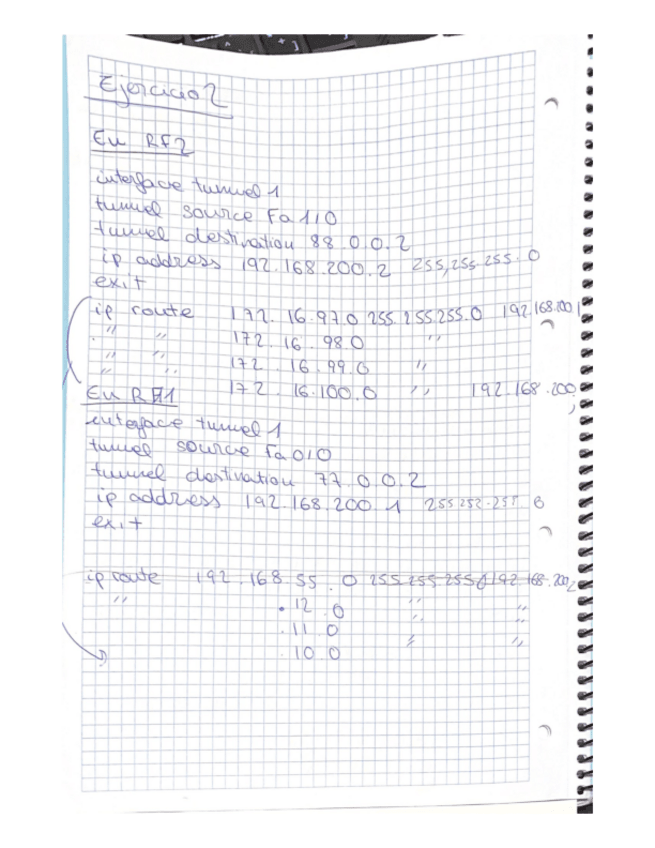 Ejercicio 2
En RF2
interface tunnel 1
tunnel source Fa 1/0
tunnel destination 88.0.0.2
ip address 192.168.200.2 255,255.255.0
exit
ip route 172.16.97.0 255.255.255.0 192.168.200.1
" " 172.16.98.0 "
" " 172.16.99.0 "
" " 172.16.100.0 " 192.168.200.
En RF1
interface tunnel 1
tunnel source Fa 0/0
tunnel destination 77.0.0.2
ip address 192.168.200.1
exit
ip route 192.168.55.0 255.255.255.0 192.168.200.2
" .12.0 " "
.11.0 " "
.10.0 " "